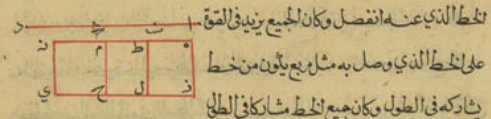 الخط الذي عنه انفصل وكان الجميع يزيد في القوة
على الخط الذي وصل به مثل مربع يكون من خط
يشاركه في الطول وكان جميع الخط مشاركا في الطول
ا ب ج د
ه ط م ن
ز ل ح ي